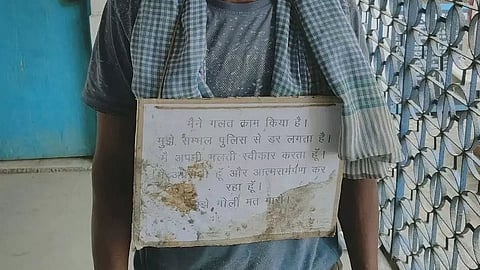 मैंने गलत काम किया है।
मुझे सम्भल पुलिस से डर लगता है।
मैं अपनी गलती स्वीकार करता हूँ।
मैं हूँ और आत्मसमर्पण कर
रहा हूँ।
मुझे गोली मत मारो।